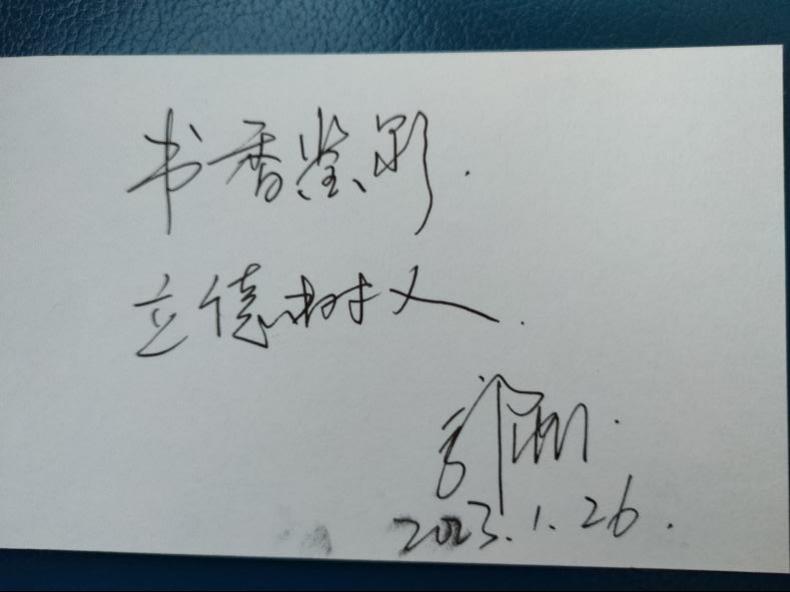 书香鉴影.
立德树人.
2023.1.26.